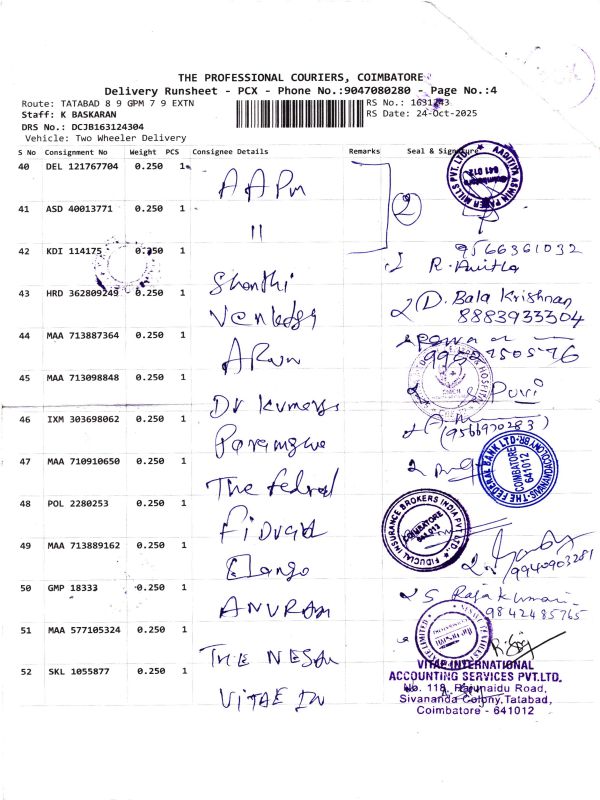 THE PROFESSIONAL COURIERS, COIMBATORE
Delivery Runsheet - PCX - Phone No.:9047080280 - Page No.:4
Route: TATABAD 8 9 GPM 7 9 EXTN
RS No.: 1631243
Staff: K BASKARAN
RS Date: 24-Oct-2025
DRS No.: DCJB163124304
Vehicle: Two Wheeler Delivery
S No Consignment No Weight PCS Consignee Details Remarks Seal & Signature
40 DEL 121767704 0.250 1 AAPM 2
AADITYA ASWIN PAPER MILLS PVT. LTD. 641 012
41 ASD 40013771 0.250 1 11
9566361032
42 KDI 114175 0.250 1 Shanthi R. Anitha
43 HRD 362809249 0.250 1 D. Bala Krishnan
8883933304
44 MAA 713887364 0.250 1 ARUN
45 MAA 713098848 0.250 1 Dr Puvi
HOSPITAL
46 IXM 303698062 0.250 1
(9566970283)
47 MAA 710910650 0.250 1 The fedral
THE FEDERAL BANK LTD. COIMBATORE 641012
48 POL 2280253 0.250 1
FIDUCIAL INSURANCE BROKERS INDIA PVT LTD. COIMBATORE 641 012
49 MAA 713889162 0.250 1 Elango
9940903281
50 GMP 18333 0.250 1 S Rajakumari
9842485765
51 MAA 577105324 0.250 1 THE
52 SKL 1055877 0.250 1 VITAE IN
VITAE INTERNATIONAL
ACCOUNTING SERVICES PVT.LTD.
No. 118, Rajunaidu Road,
Sivananda Colony,Tatabad,
Coimbatore - 641012